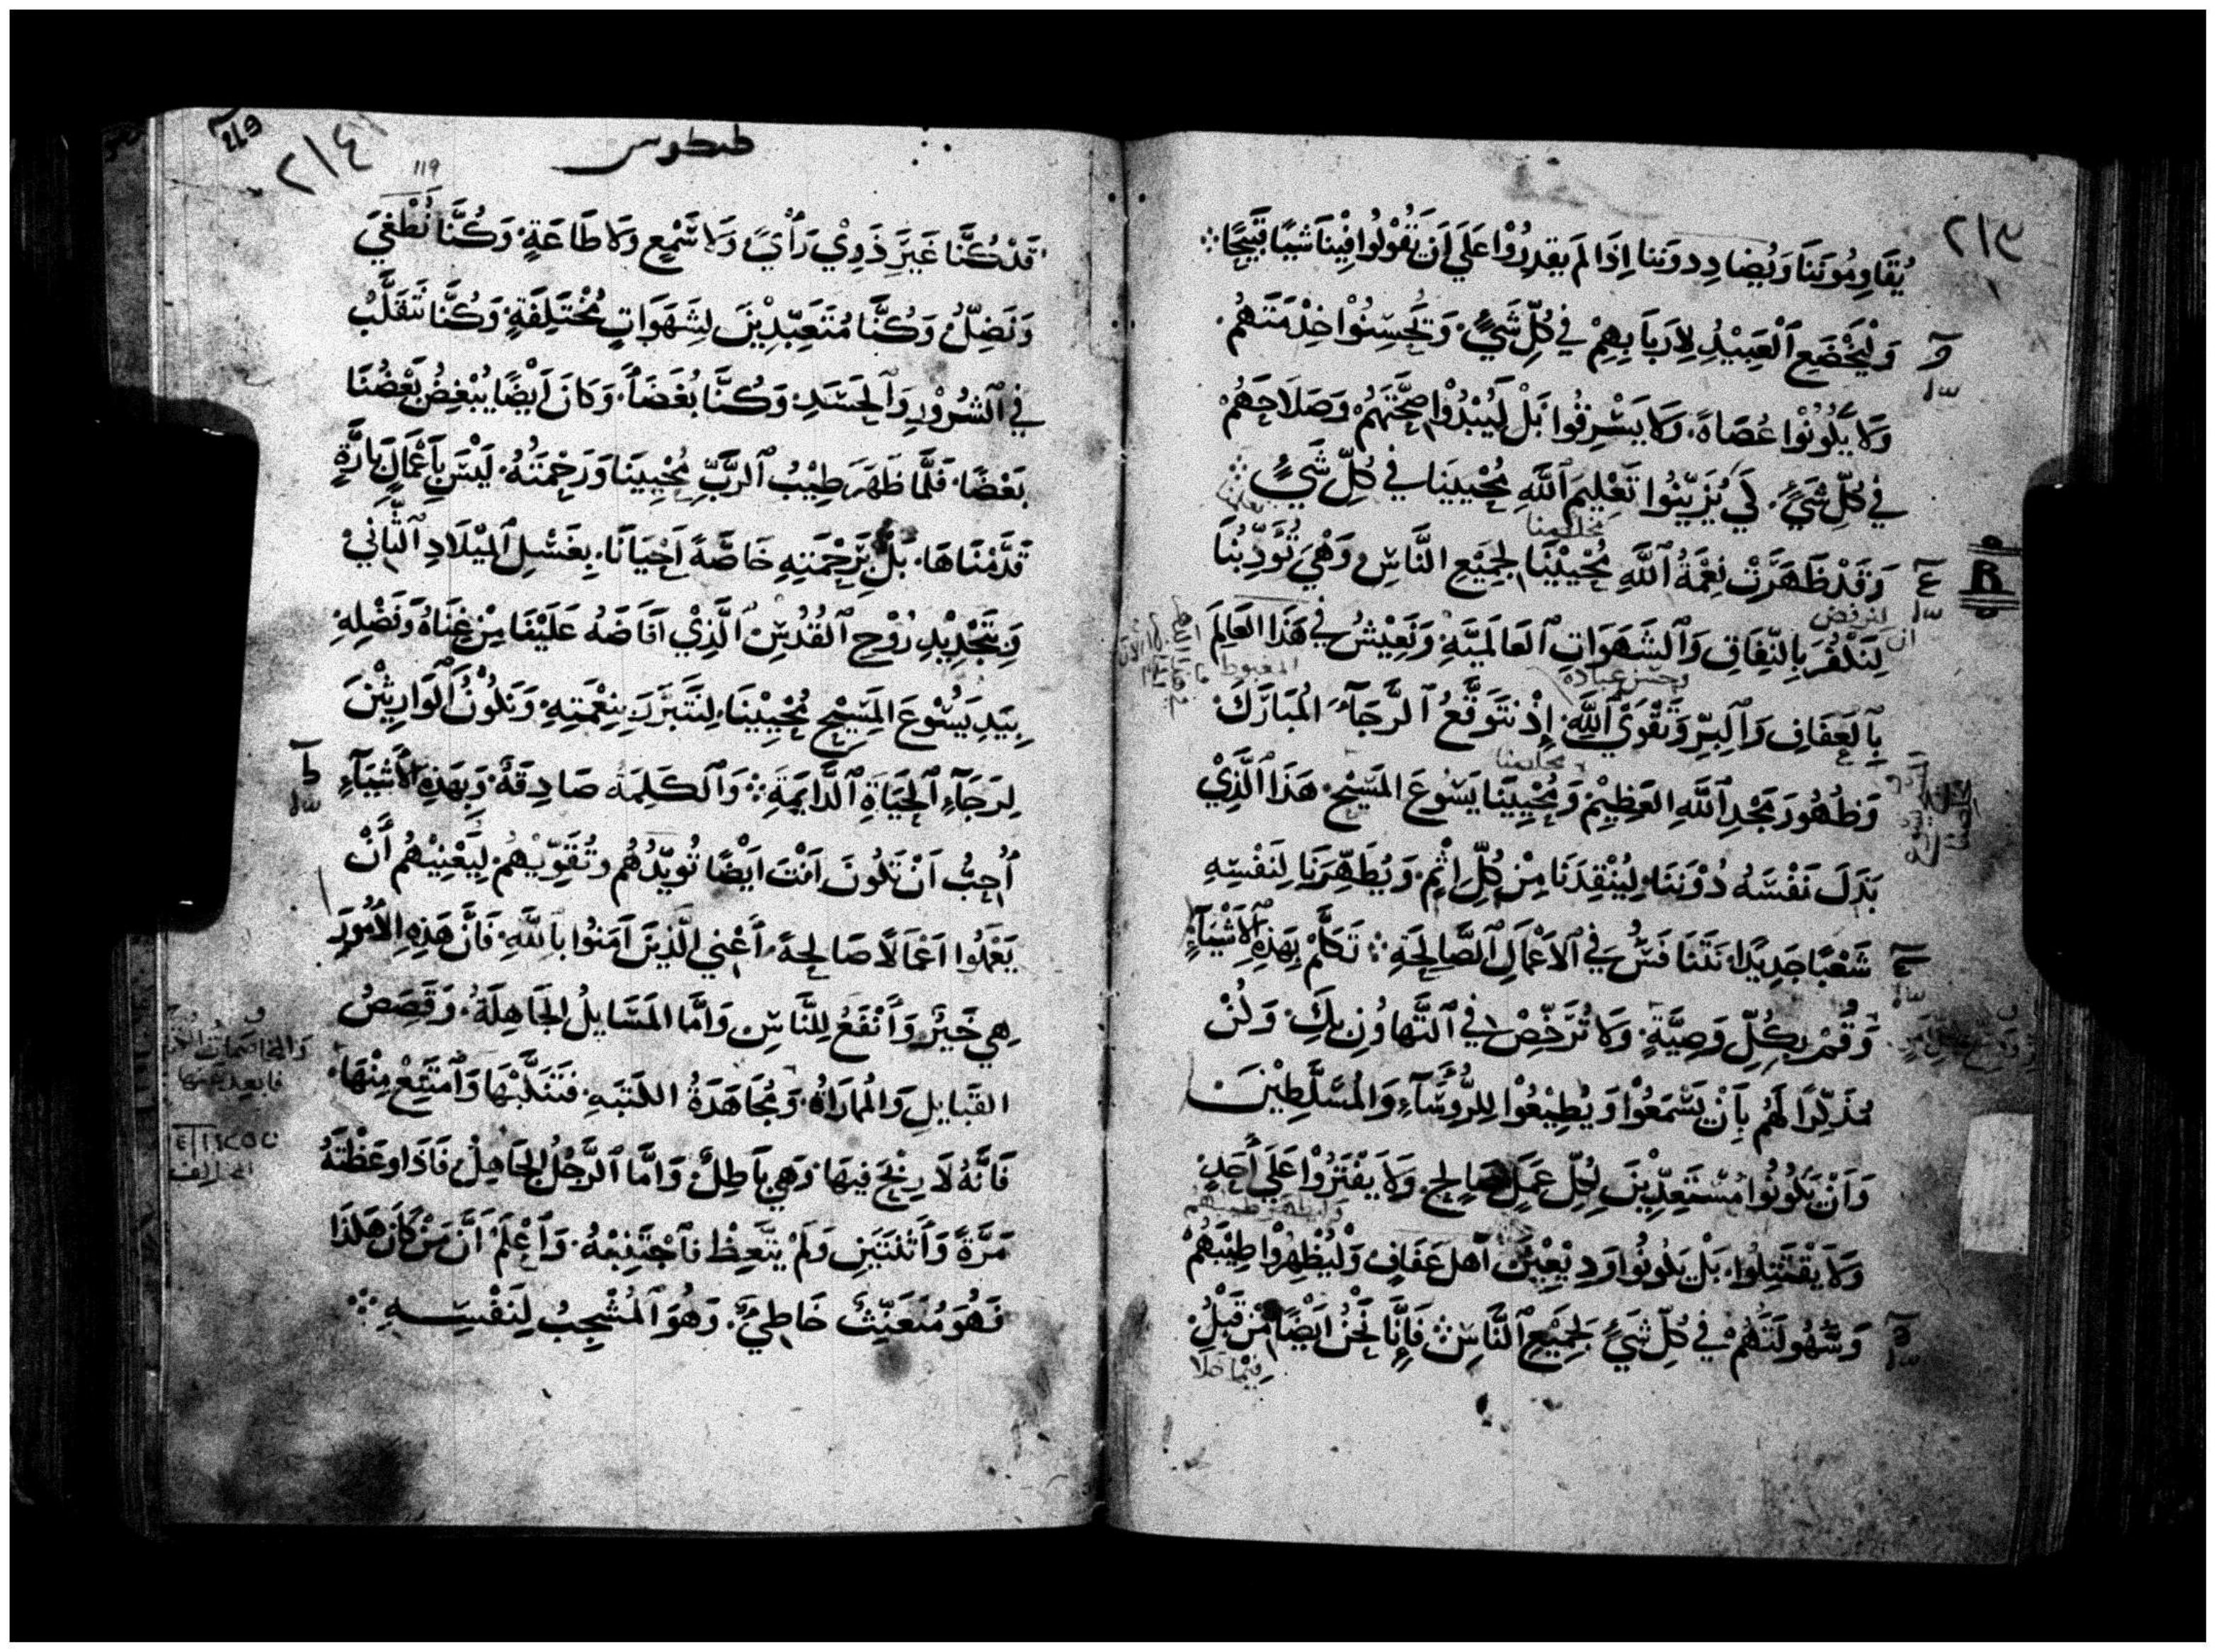 ٢١٣
يُقَاوِمُونَنَا وَيُضَادِدُونَنا اِذَا لَم يَقدِرُوْا عَلَى اَن تَقُوْلُوا فِيْنَا شَيئًا قَبِيْحًا
وَلْيَخْضَعِ ٱلْعَبِيْدُ لِاَربَابِهِمْ فِي كُلِّ شَيْءٍ. وَيُحَسِنُوْا خِدْمَتَهُمْ.
وَلَا يَكُونُوْا عُصَاةً. وَلَا يَسْرِقُوا بَلْ لِيُبْدُوْا صِحَّتَهُمْ وَصَلَاحَهُمْ
في كُلِّ شَيْءٍ. كَي يُزَيِّنُوا تَعْلِيمَ ٱللَّهِ مُحْيِيَنَا فِي كُلِّ شَيْءٍ
مخلصنا
وَقَدْ ظَهَرَتْ نِعْمَةُ ٱللَّهِ مُحْيِيْنَا لِجَمِيْعِ النَّاسِ وَهْيَ تُؤَدِّبُنَا
ان لنرفض
لِنَكْفُرَ بِالنِّفَاقِ وَٱلشَهَوَاتِ ٱلعَالَمِيَّةِ وَنَعِيْشُ في هَذَا العَالَمَ
وحسن عبادة
بِٱلعَفَافِ وَٱلبِرِّ وَتَقْوَىْ ٱللَّهِ. اِذْ نتَوَقَّعُ ٱلرَّجَآءَ المُبَارَكَ
المغبوط
ومخلصنا
وَظُهُورَ مَجْدِ ٱللَّهِ العَظِيْمِ وَمُحْيِيَنَا يَسُوعَ المَسِيْحِ. هَذَا ٱلَّذِيْ
بَذَلَ نَفْسَهُ دُوْنَنَا. لِيُنْقِذَنَا مِنْ كُلِّ اِثْمٍ. وَيُطَهِّرَنَا لِنَفْسِهِ
شَعْبًا جَدِيْدًا. نَتَنَافَسُ فِي ٱلاَعْمَالِ ٱلصَّالِحَةِ تَكَلَّمْ بِهَذِهِ ٱلاَشْيَآءِ
وَقُمْ بِكُلِّ وَصِيَّةٍ. وَلَا تُرَخِّصْ فِي ٱلتَّهَاوُنِ بِكَ. وَكُنْ
مُذَكِّرًا لَهُم بِاَنْ يَسْمَعُوْا وَيُطِيْعُوْا لِلرُّوَسَآءِ وَالمُسَلَّطِيْنَ
وَاَنْ يَكُونُوا مُسْتَعِدِّيْنَ لِكُلِّ عَمَلٍ صَالِحٍ. وَلَا يَفْتَرُوْا عَلَى اَحَدٍ
وَلَا يَقْتَتِلُوا. بَلْ يَكُونُوا وَدِيْعِيْنَ اَهلَ عَفَافٍ وَلْيُظهِرُوْا طِيْبَهُمْ
وَسُهُولَتَهُمْ فِي كُلِّ شَيْءٍ لِجَمِيْعِ ٱلنَّاسِ فَاِنَّا نَحْنُ اَيْضًا مِنْ قَبْلُ
فيما خلا
طيطوس
٢١٤
119
قَدْ كُنَّا غَيْرَ ذَوِيْ رَأْيٍ وَلَا سَمْعٍ وَلَا طَاعَةٍ. وَكُنَّا نُطْغَى
وَنَضِلُّ. وَكُنَّا مُتَعَبِّدِيْنَ لِشَهَوَاتٍ مُخْتَلِفَةٍ. وَكُنَّا نَتَقَلَّبُ
فِي ٱلشُرُوْرِ وَٱلحَسَدِ. وَكُنَّا بُغَضَآءَ. وَكَانَ اَيْضًا يُبْغِضُ بَعْضُنَا
بَعْضًا. فَلَمَّا ظَهَرَ طِيْبُ ٱلرَّبِّ مُحْيِيَنَا وَرَحْمَتَهُ. لَيْسَ بِاَعْمَالٍ بَارَّةٍ
قَدَّمْنَاهَا. بَلْ بِرَحْمَتِهِ خَاصَّةً اَحْيَانَا. بِغَسْلِ ٱلمِيْلَادِ ٱلثَّانِيْ
وَبِتَجْدِيْدِ رُوْحِ ٱلقُدُسِ ٱلَّذِيْ اَفَاضَهُ عَلَيْنَا مِنْ غِنَاهُ وَفَضْلِهِ
بِيَدِ يَسُوْعَ المَسِيْحِ مُحْيِيْنَا. لِنَتَبَرَّرَ بِنِعْمَتِهِ. وَنَكُوْنُ ٱلوَارِثِيْنَ
لِرَجَآءِ ٱلحَيَاةِ ٱلدَّايِمَةِ وَٱلكَلِمَة صَادِقَةٌ. وَبِهَذِهِ ٱلاَشْيَآءِ
اُحِبُّ اَنْ تَكُونَ اَنْتَ اَيْضًا تُويِّدُهُم وتُقَوِّيْهُمْ. لِيَعْنِيْهُمْ اَنْ
يَعْمَلُوا اَعْمَالًا صَالِحةً. اَعْنِي الَّذِينَ اَمَنُوا بِاللَّهِ. فَاِنَّ هَذِهِ الاُمُورَ
هِي خَيْرٌ وَاَنْفَعُ لِلنَّاسِ. وَاَمَّا المَسَايِلُ الجَاهِلَةُ. وَقَصَصُ
القَبَايِلِ وَالمُمَارَاةُ. وَمُجَاهَدَةُ الكَتَبَةِ. فَتَنَكَّبْهَا وَٱمْتَنِعْ مِنْهَا.
فَاِنَّهُ لَا رِبْحَ فِيهَا. وَهِي بَاطِلٌ. وَاَمَّا ٱلرَّجُلُ الجَاهِلُ. فَاِذَا وَعَظْتَهُ
مَرَّةً وَٱثْنَتَيْنِ وَلَمْ يَتَّعِظْ فَٱجْتَنِبْهُ. وَٱعْلَمْ اَنَّ مَنْ كَانَ هَكَذَا
فَهُوَ مُتَعَيِّثٌ خَاطِيٌ. وَهُوَ ٱلمُشْجِبُ لِنَفْسِهِ
والمخاصمات
فابعد عنها